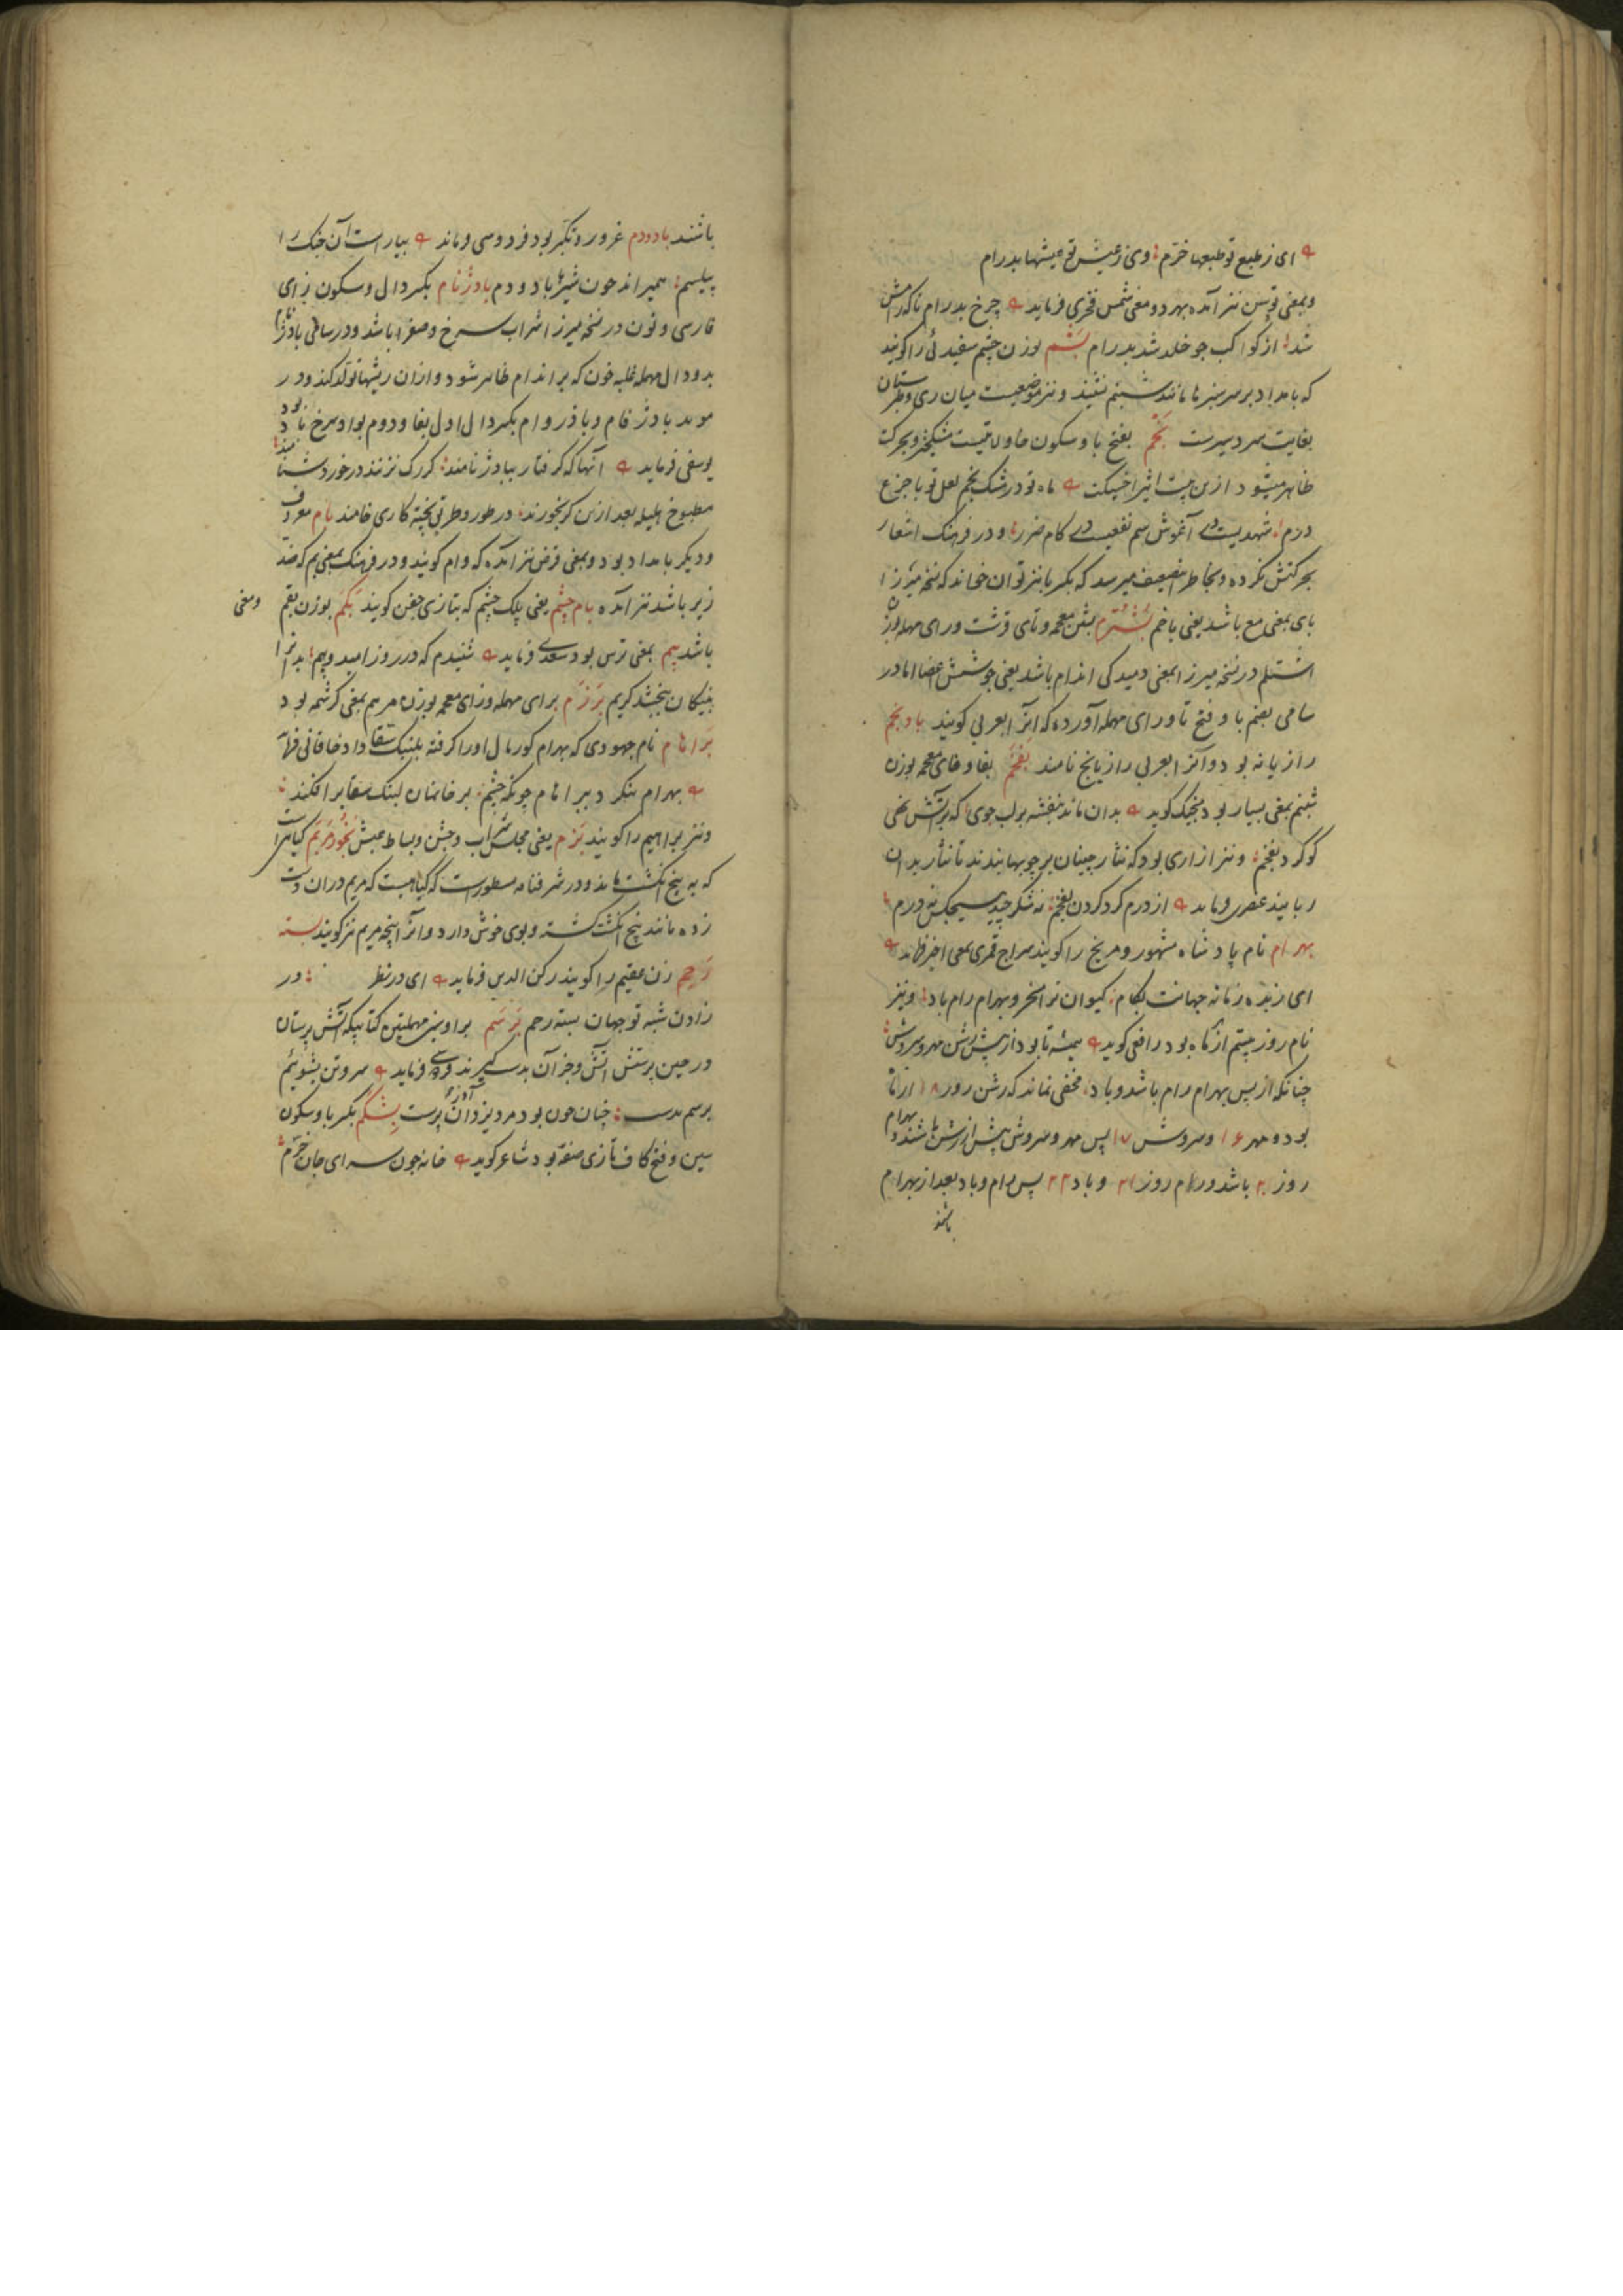 ای ز طبع تو طبعها خرم وی ز عیش تو عیشها بدرام
وبمعنی توسن نیز آمده بهر دو معنی شمس فخری فرماید چرخ بدرام ناکه رامش
شد از کواکب چو خلد شد بدرام بشم بوزن چشم سفیدئی را کویند
که بامداد بر سر سبزها مانند شبنم نشیند و نیز موضعیست میان ری و طبرستان
بغایت سردسیرست بخم بفتح با و سکون خا
ظاهر میشود ازین بیت اثیر اخسیکت ماه تو در شک بخم لعل تو با جزع
درم شهدیست در آغوش سم نفعیست در کام ضرر و در فرهنک اشعار
بحرکتش نکرده و بخاطر این ضعیف میرسد که بکسر با نیز توان خواند که نسخه میرزا
بای بمعنی مع باشد یعنی با خم بشترم بشین معجمه و تای قرشت و رای مهمله بوزن
اشتلم در نسخه میرزا بمعنی دمیدکی اندام باشد یعنی جوشش اعضا اما در
سامی بضم با و فتح تا و رای مهمله آورده که آنرا بعربی کویند بادیخم
رازیانه بود و آنرا بعربی رازیانج نامند بفخم بفا و خای معجمه بوزن
شبنم بمعنی بسیار بود بنجیک کوید بدان ماند بنفشه بر لب جوی که بر آتش نهی
کوکرد بفخم و نیز ازاری بود که نثار چینان بر چوبها بندند تا نثار بدان
ربایند عنصری فرماید از درم کرد کردن بفخم نه شکر چید هیچکس نه درم
بهرام نام پادشاه مشهور و مریخ را کویند سراج قمری بمعنی اخیر فرماید
ای زبده زمانه جهانت بکام کیوان ترا مسخر و بهرام رام باد و نیز
نام روز بیستم از ماه بود رافعی کوید همیشه تا بود از پیش رشن مهر و سروش
چنانکه از پس بهرام رام باشد و باد مخفی نماند که رشن روز ۱۸ از ماه
بود و مهر ۱۶ و سروش ۱۷ پس مهر و سروش پیش از رشن باشند و بهرام
روز ۲۰ باشد و رام روز ۲۱ و باد ۲۲ پس رام و باد بعد از بهرام
باشند
باشند بادودم غرور و تکبر بود فردوسی فرماید بیاراست آن جنک را
پیلسم همیراند چون شیر با باد و دم بادژنام بکسر دال و سکون زای
فارسی و نون در نسخه میرزا شراب سرخ و صفرا باشد و در سامی بادژفام
بر و دال مهمله غلبه خون که بر اندام ظاهر شود و ازان ریشها تولد کند و در
موید بادژفام و بادروام بکسر دال اول بفا و دوم بواو سرخ باد بود
یوسفی فرماید آنها که کرفتار ببادژنامند کرک نزنند در خورد دشنامند
مطبوخ هلیله بعد ازین کر نخورند در طور و طریق پخته کاری خامند بام معروف
و دیکر بامداد بود و بمعنی قرض نیز آمده که وام کویند و در فرهنک بمعنی بم که ضد
زیر باشد نیز آمده بام چشم یعنی پلک چشم که بتازی جفن کویند بکم بوزن بقم ومعنی
باشد بیم بمعنی ترس بود سعدی فرماید شنیدم که در روز امید و بیم بدانرا
بنیکان ببخشد کریم برزم برای مهمله و زای معجمه بوزن مریم بمعنی کرشمه بود
براهام نام جهودی که بهرام کور مال اورا کرفته بلنبک سقا داد خاقانی فرماید
بهرام ننکرد ببراهام چونکه چشم بر خانمان لنبک سقا برافکند
و نیز براهیم را کویند بزم یعنی مجلس شراب و جشن و بساط عیش بخورمریم کیاهیست
که به پنج انکشت ماند و در شرفنامه مسطورست که کیاهیست که مریم دران دست
زده مانند پنج انکشت کشته و بوی خوش دارد و آنرا پنجه مریم نیز کویند بسته
رحم زن عقیم را کویند رکن الدین فرماید ای در نظر در
زادن شبه تو جهان بسته رحم برسم برا و سین مهملتین کتابیکه آتش پرستان
در حین پرستش آتش و جز آن بدست کیرند فردوسی فرماید سر و تن بشوئیم
برسم بدست چنان چون بود مرد یزدان پرست بشکم بکسر با و سکون
سین و فتح کاف تازی صفه بود شاعر کوید خانه چون سرای جان خرم